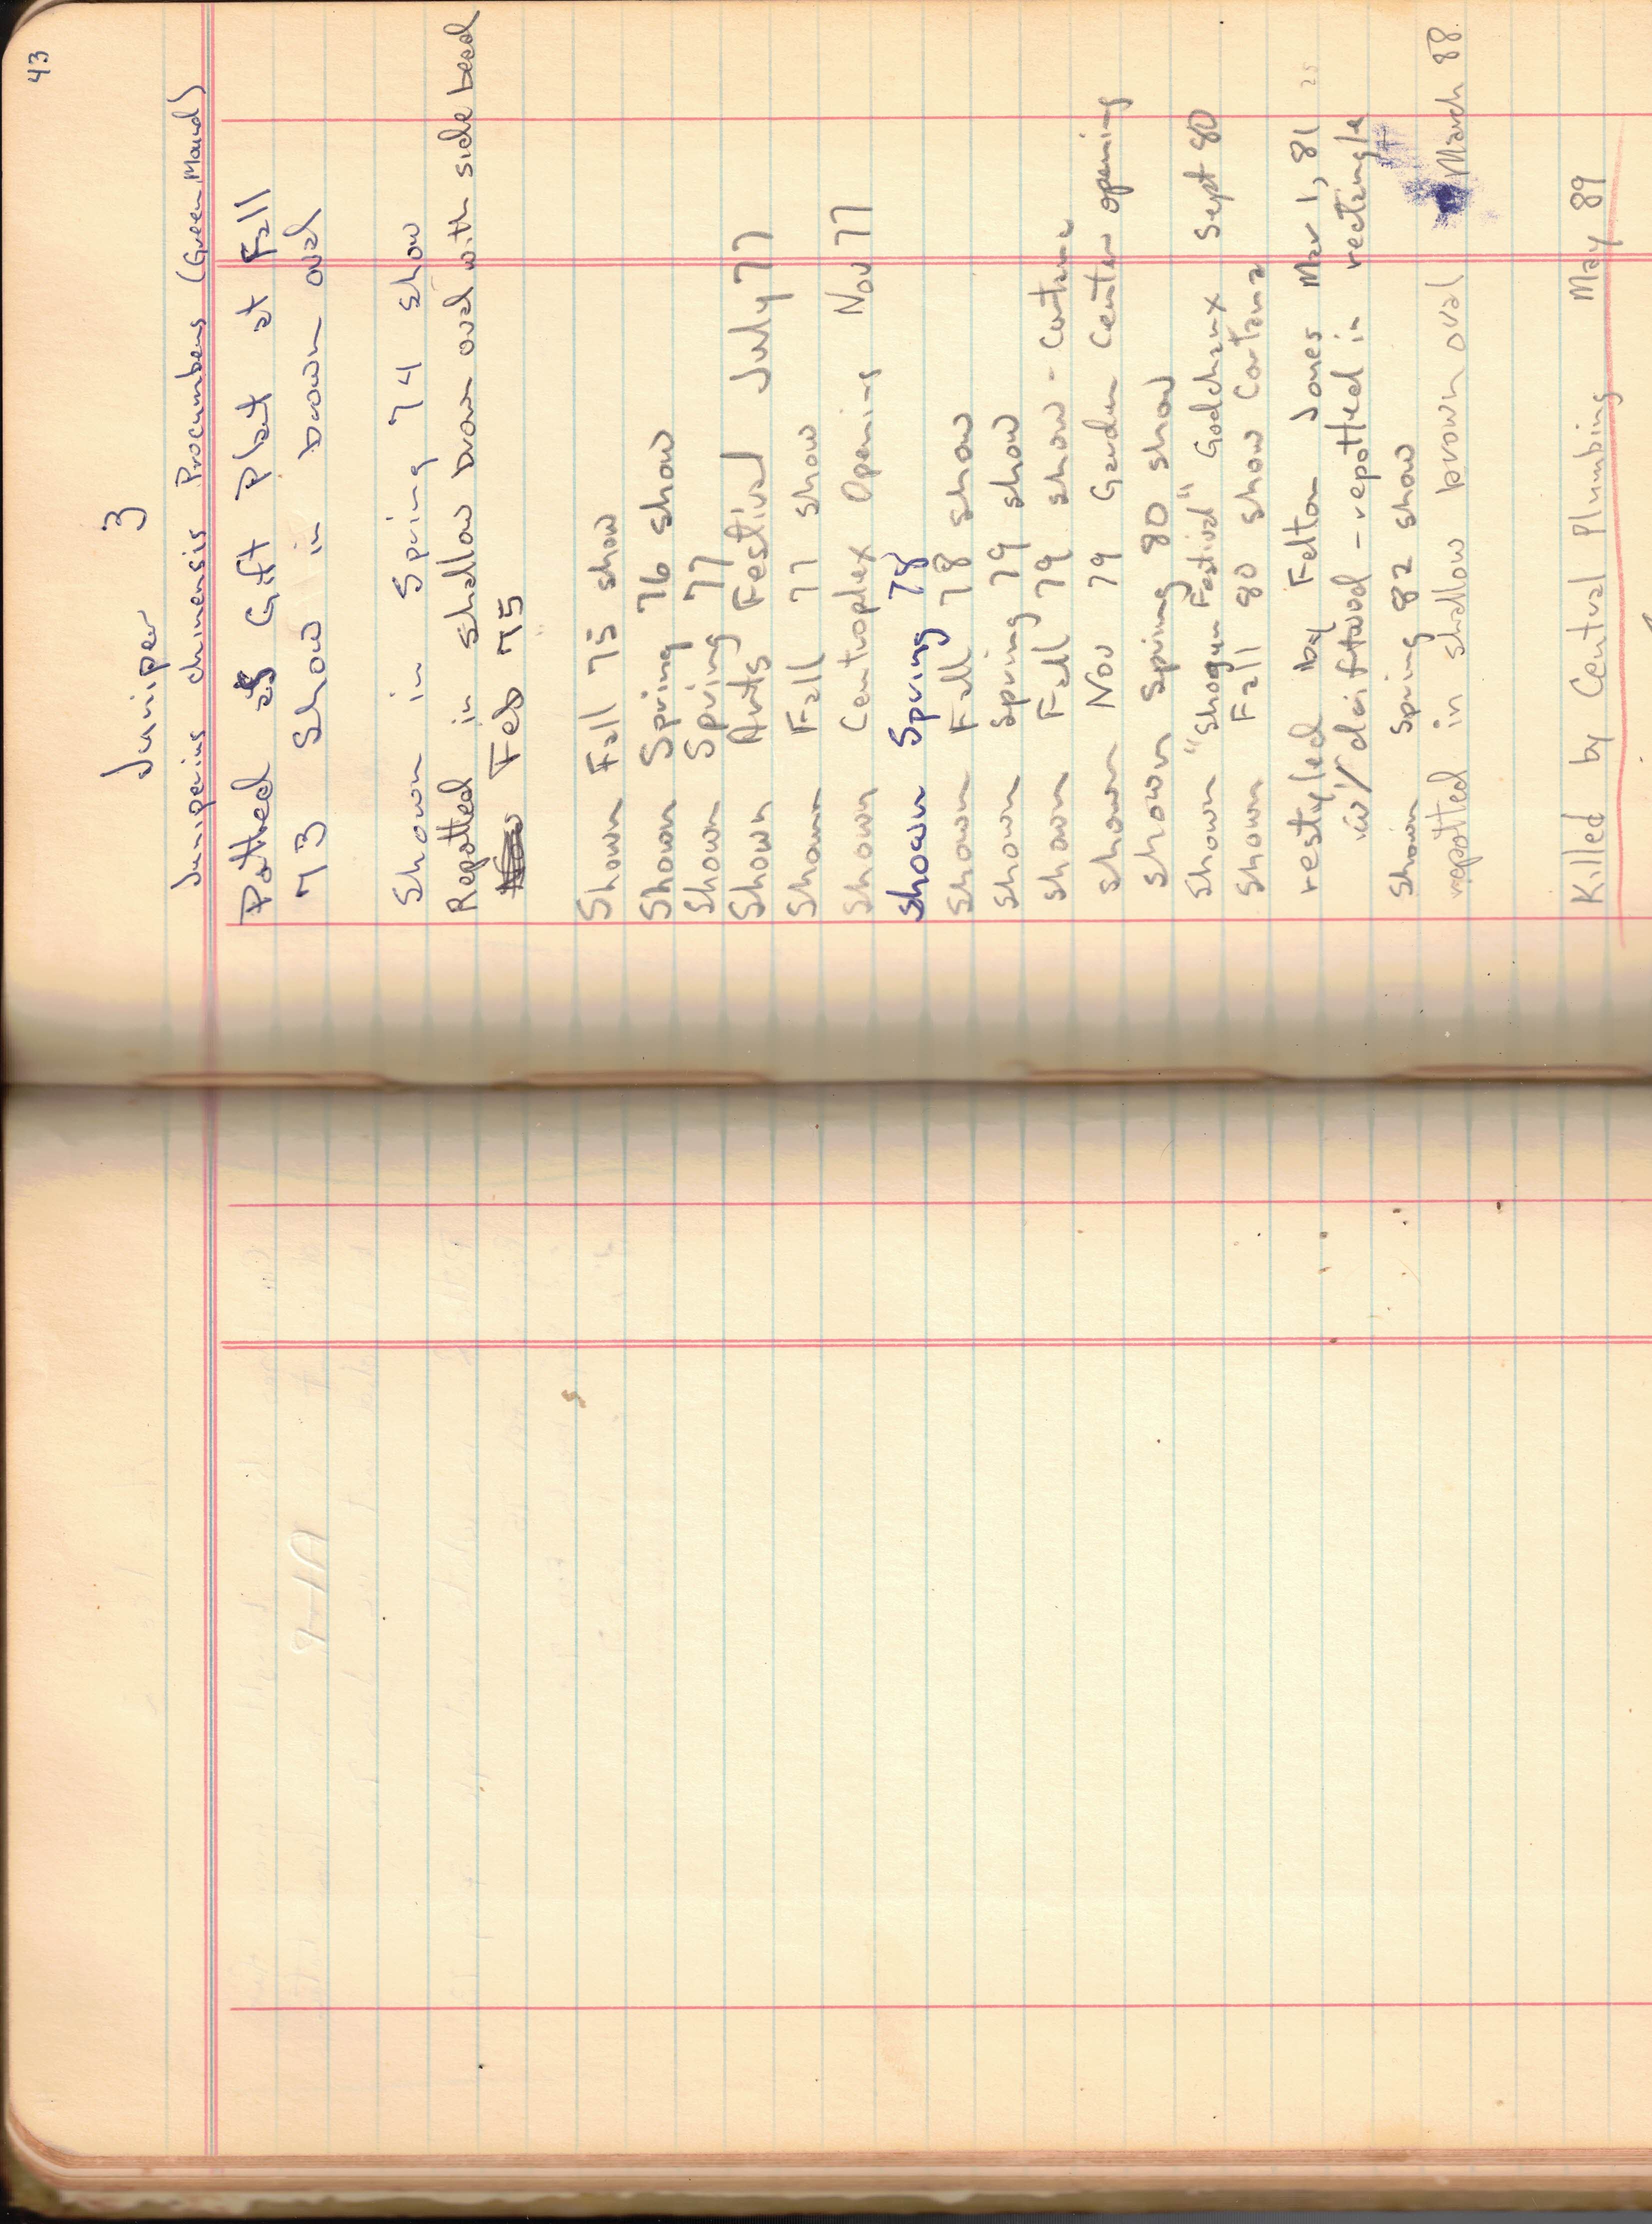 43
Juniper 3
Juniperius chinensis Procumbens (Green Mound)
Potted as Gift Plant at Fall
73 Show in brown oval
Shown in Spring 74 show
Repotted in shallow brown oval with side bead
Nov Feb 75
Shown Fall 75 show
Shown Spring 76 show
Shown Spring 77
Shown Arts Festival July 77
Shown Fall 77 show
Shown Centroplex Opening Nov 77
Shown Spring 78
Shown Fall 78 show
Shown Spring 79 show
shown Fall 79 show - Cortana
shown Nov 79 Garden Center opening
shown Spring 80 show
Shown "Shogun Festival" Godchaux Sept 80
Shown Fall 80 show Cortana
restyled by Felton Jones Mar 1, 81 25
w/ driftwood - repotted in rectangle
Shown Spring 82 show
repotted in shallow brown oval March 88.
Killed by Central Plumbing May 89